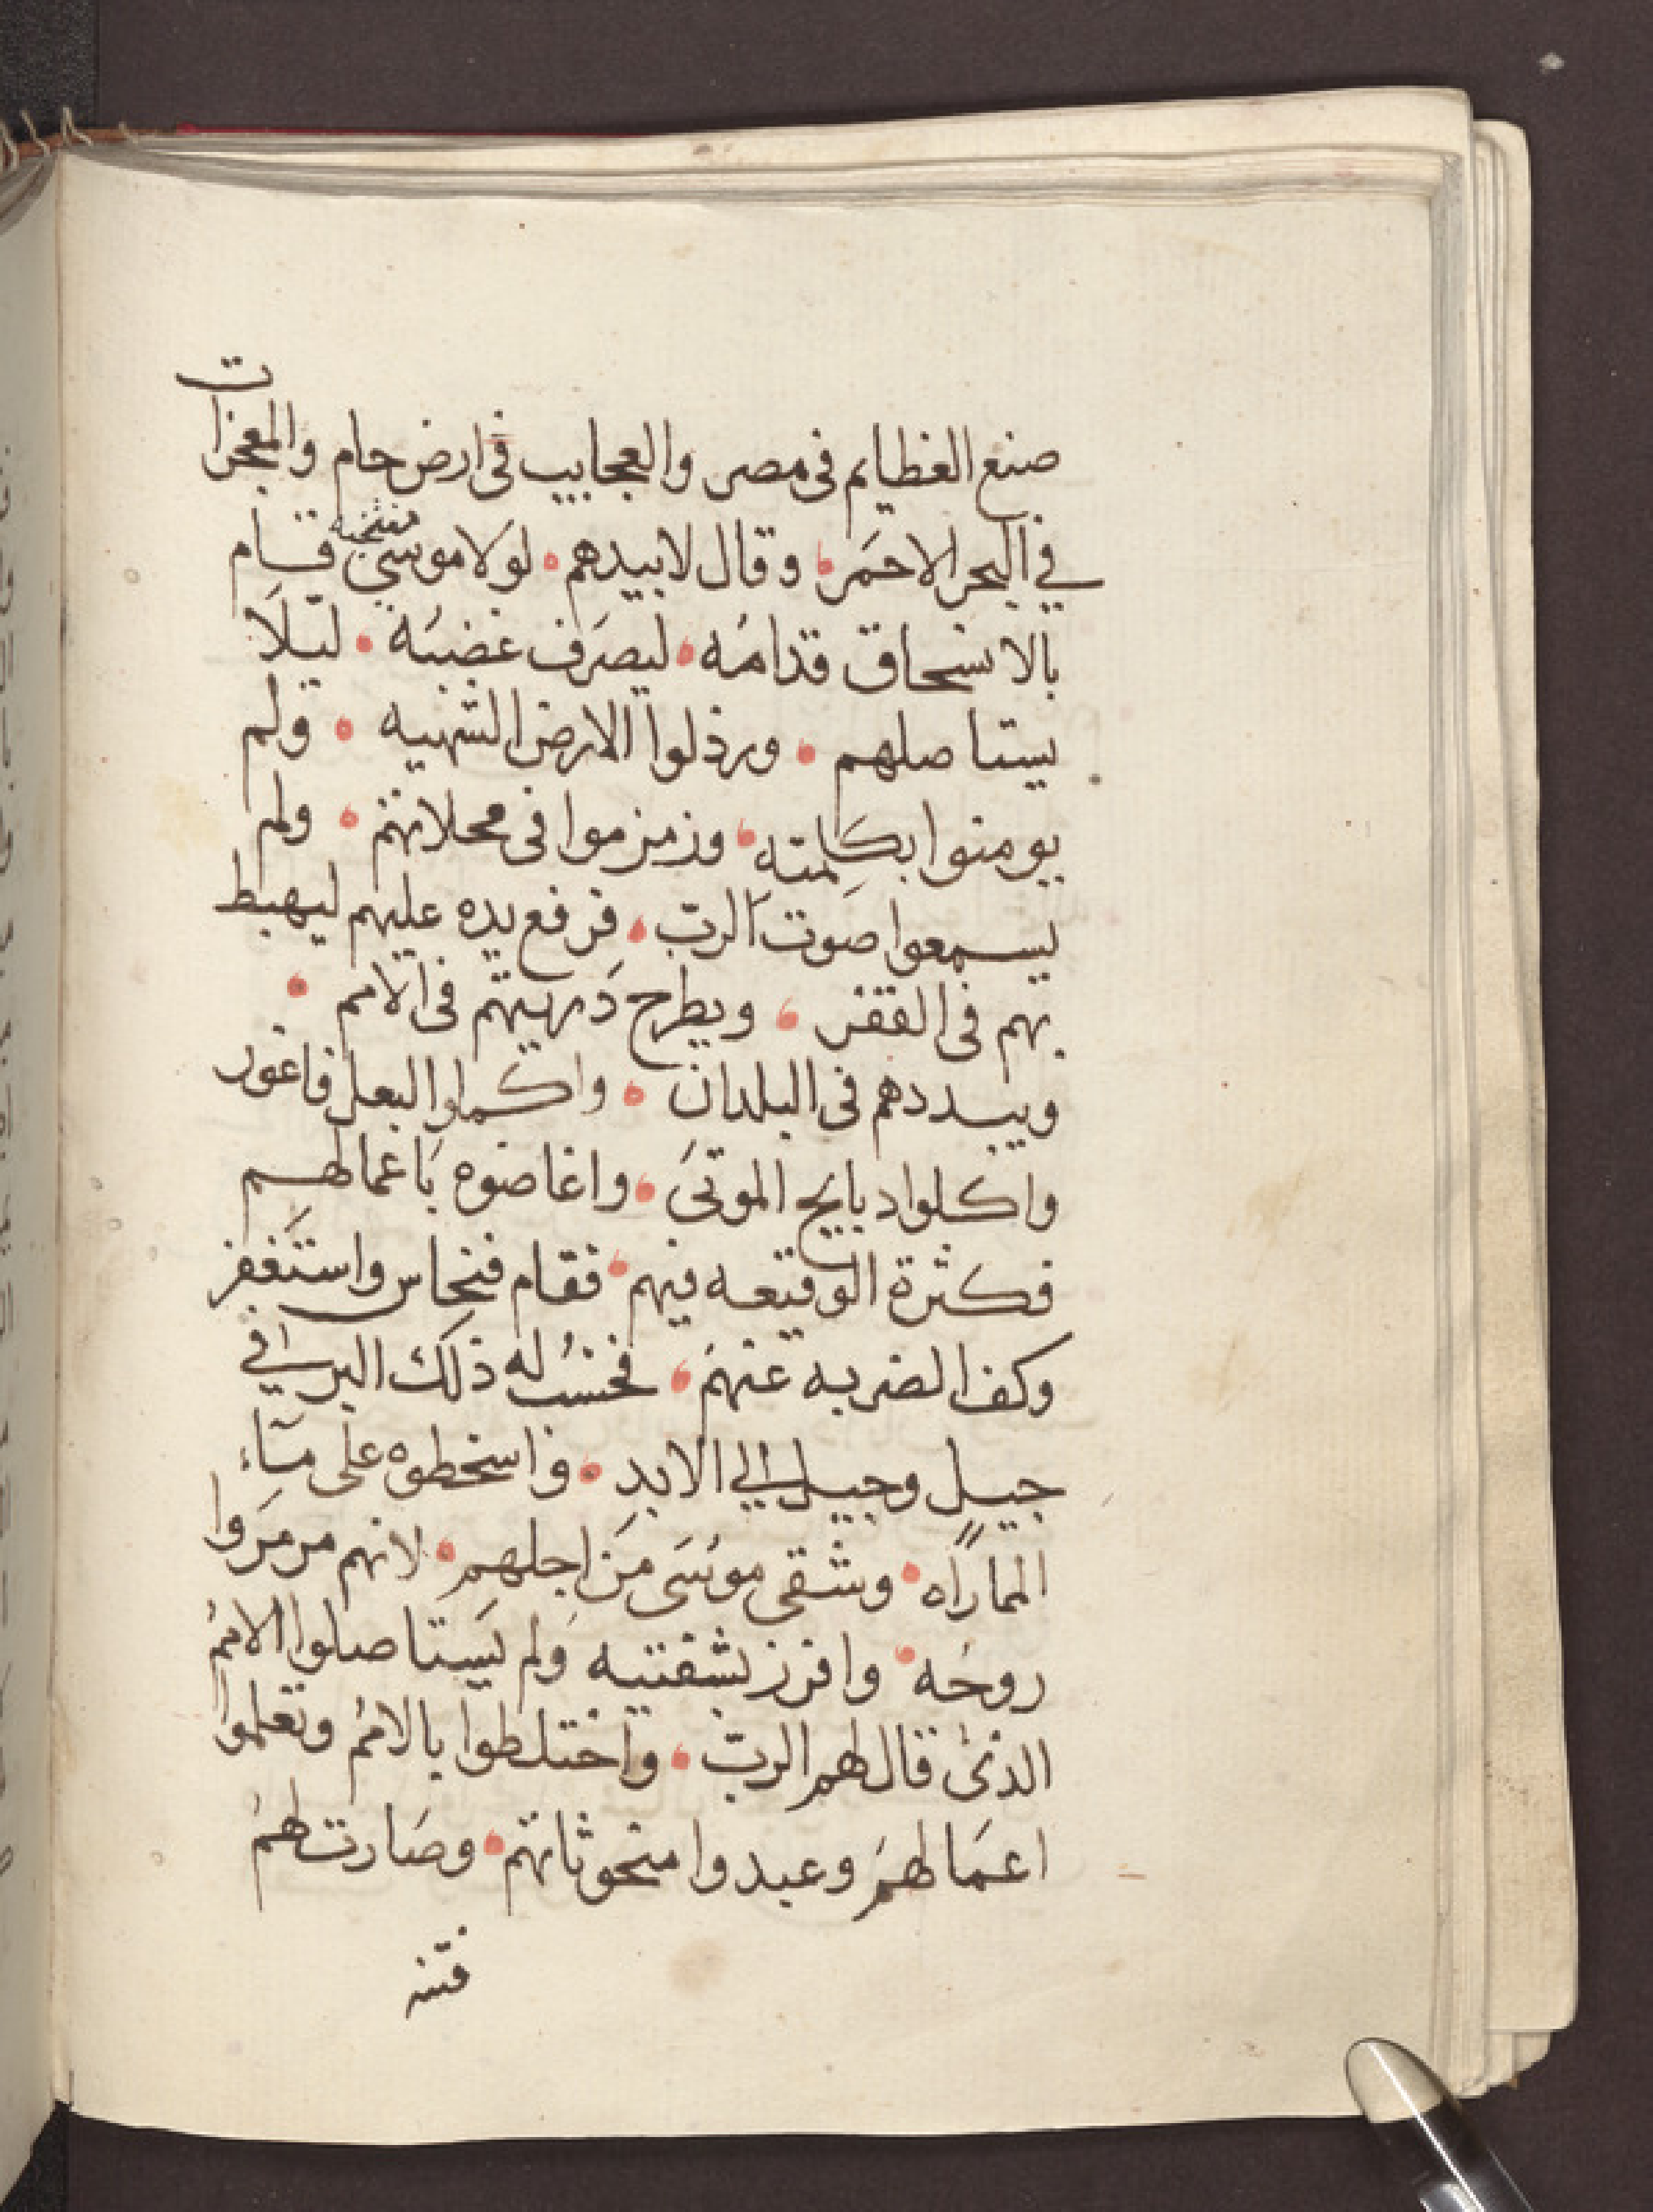 صنع العظايم فى مصر والعجايب فى ارض حام والمعجزات
في البحر الاحمر • وقال لابيدهم • لولا موسي منتخبه قام
بالانسحاق قدامه • ليصرف غضبه • ليلا
يستاصلهم • ورذلوا الارض الشهيه • ولم
يومنوا بكلمته • وزمزموا فى محلاتهم • ولم
يسمعوا صوت الرب • فرفع يده عليهم ليهبط
بهم فى القفر • ويطرح ذريتهم فى الامم •
ويبددهم فى البلدان • واكملوا البعل فاغور
واكلوا دبايح الموتى • واغاضوه باعمالهم
فكثرة الوقيعه فيهم • فقام فنحاس واستغفر
وكف الضربه عنهم • فحسب له ذلك البر في
جيل وجيل الي الابد • واسخطوه على ماء
الماراه • وشقى موسى من اجلهم • لانهم مرمروا
روحه • وافرز بشفتيه ولم يستاصلوا الامم
الذى قال لهم الرب • واختلطوا بالامم وتعلموا
اعمالهم وعبدوا منحوثاتهم • وصارت لهم